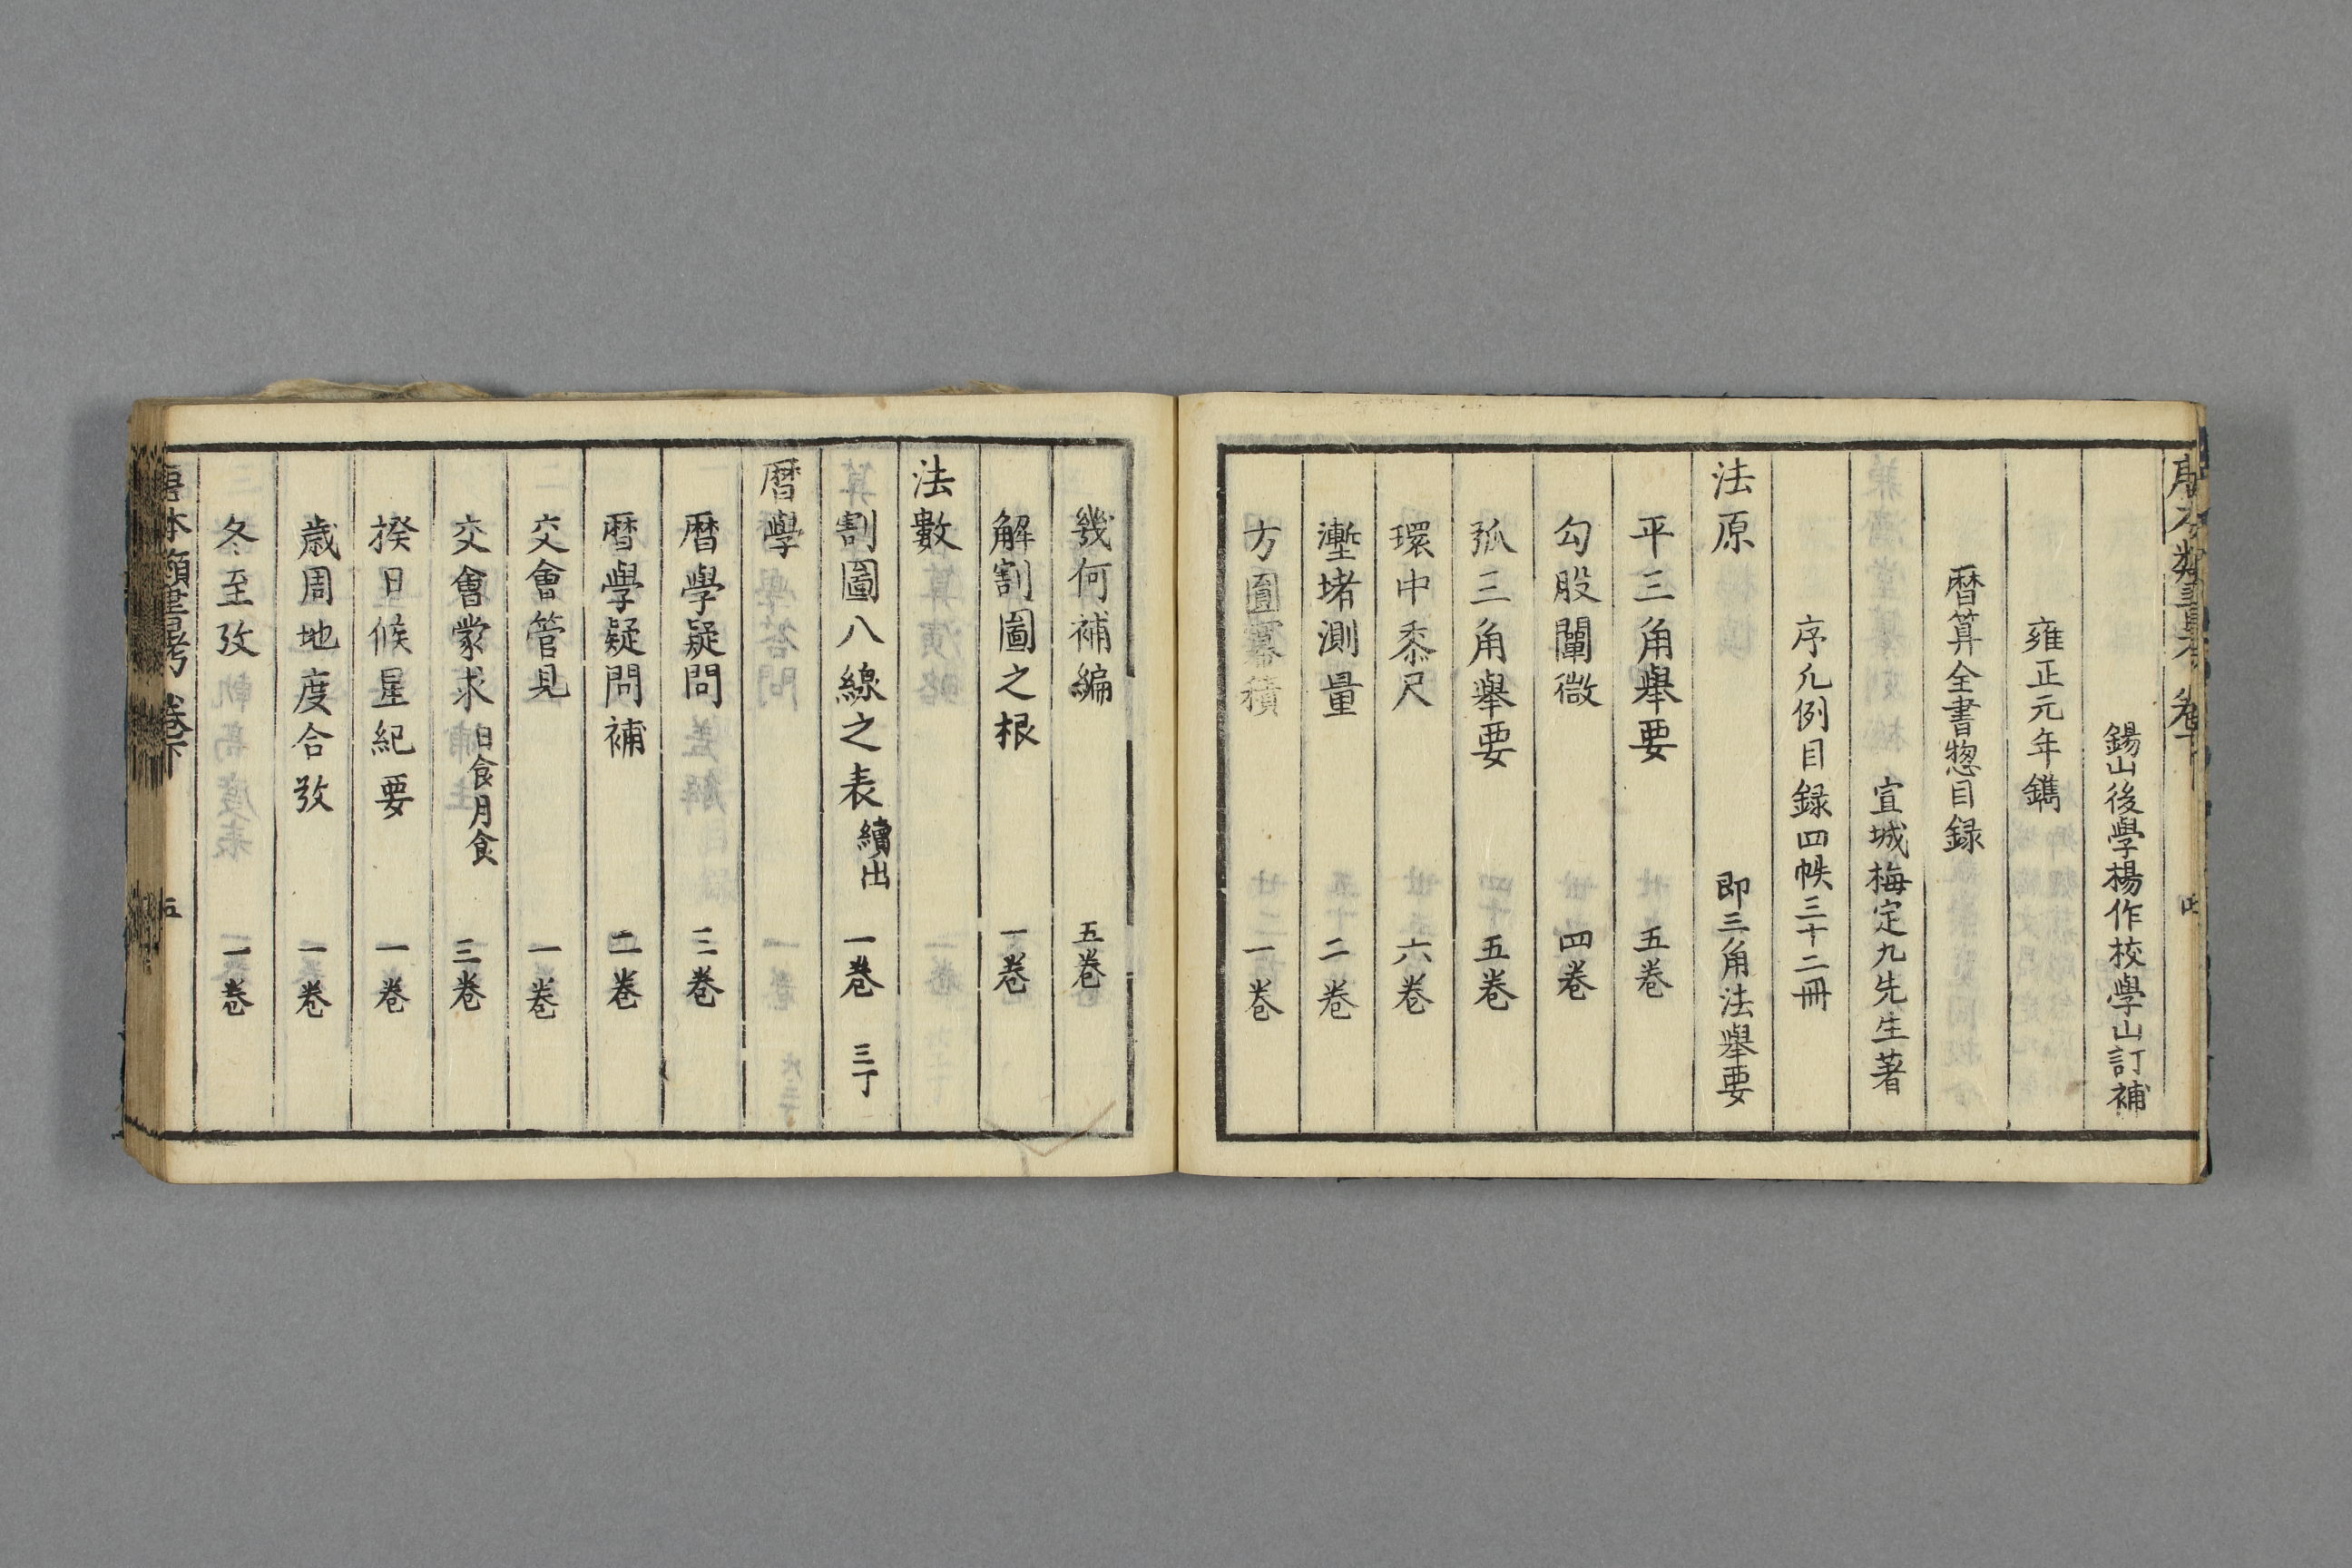 鍚山後學楊作校學山訂補
雍正元年鐫
暦算全書惣目録
宣城梅定九先生著
序凢例目録四帙三十二冊
法原 即三角法舉要
平三角舉要 五卷
勾股闡微 四卷
弧三角舉要 五卷
環中黍尺 六卷
塹堵測量 二卷
方圓冪積 一卷
幾何補編 五卷
解割圓之根 一卷
法數
割圓八線之表 續出 一卷 三丁
暦學
暦學疑問 三卷
暦學疑問補 二卷
交會管見 一卷
交會蒙求 日食月食 三卷
揆日候星紀要 一卷
歳周地度合攷 一卷
冬至攷 一卷
唐本類書考 卷下 五